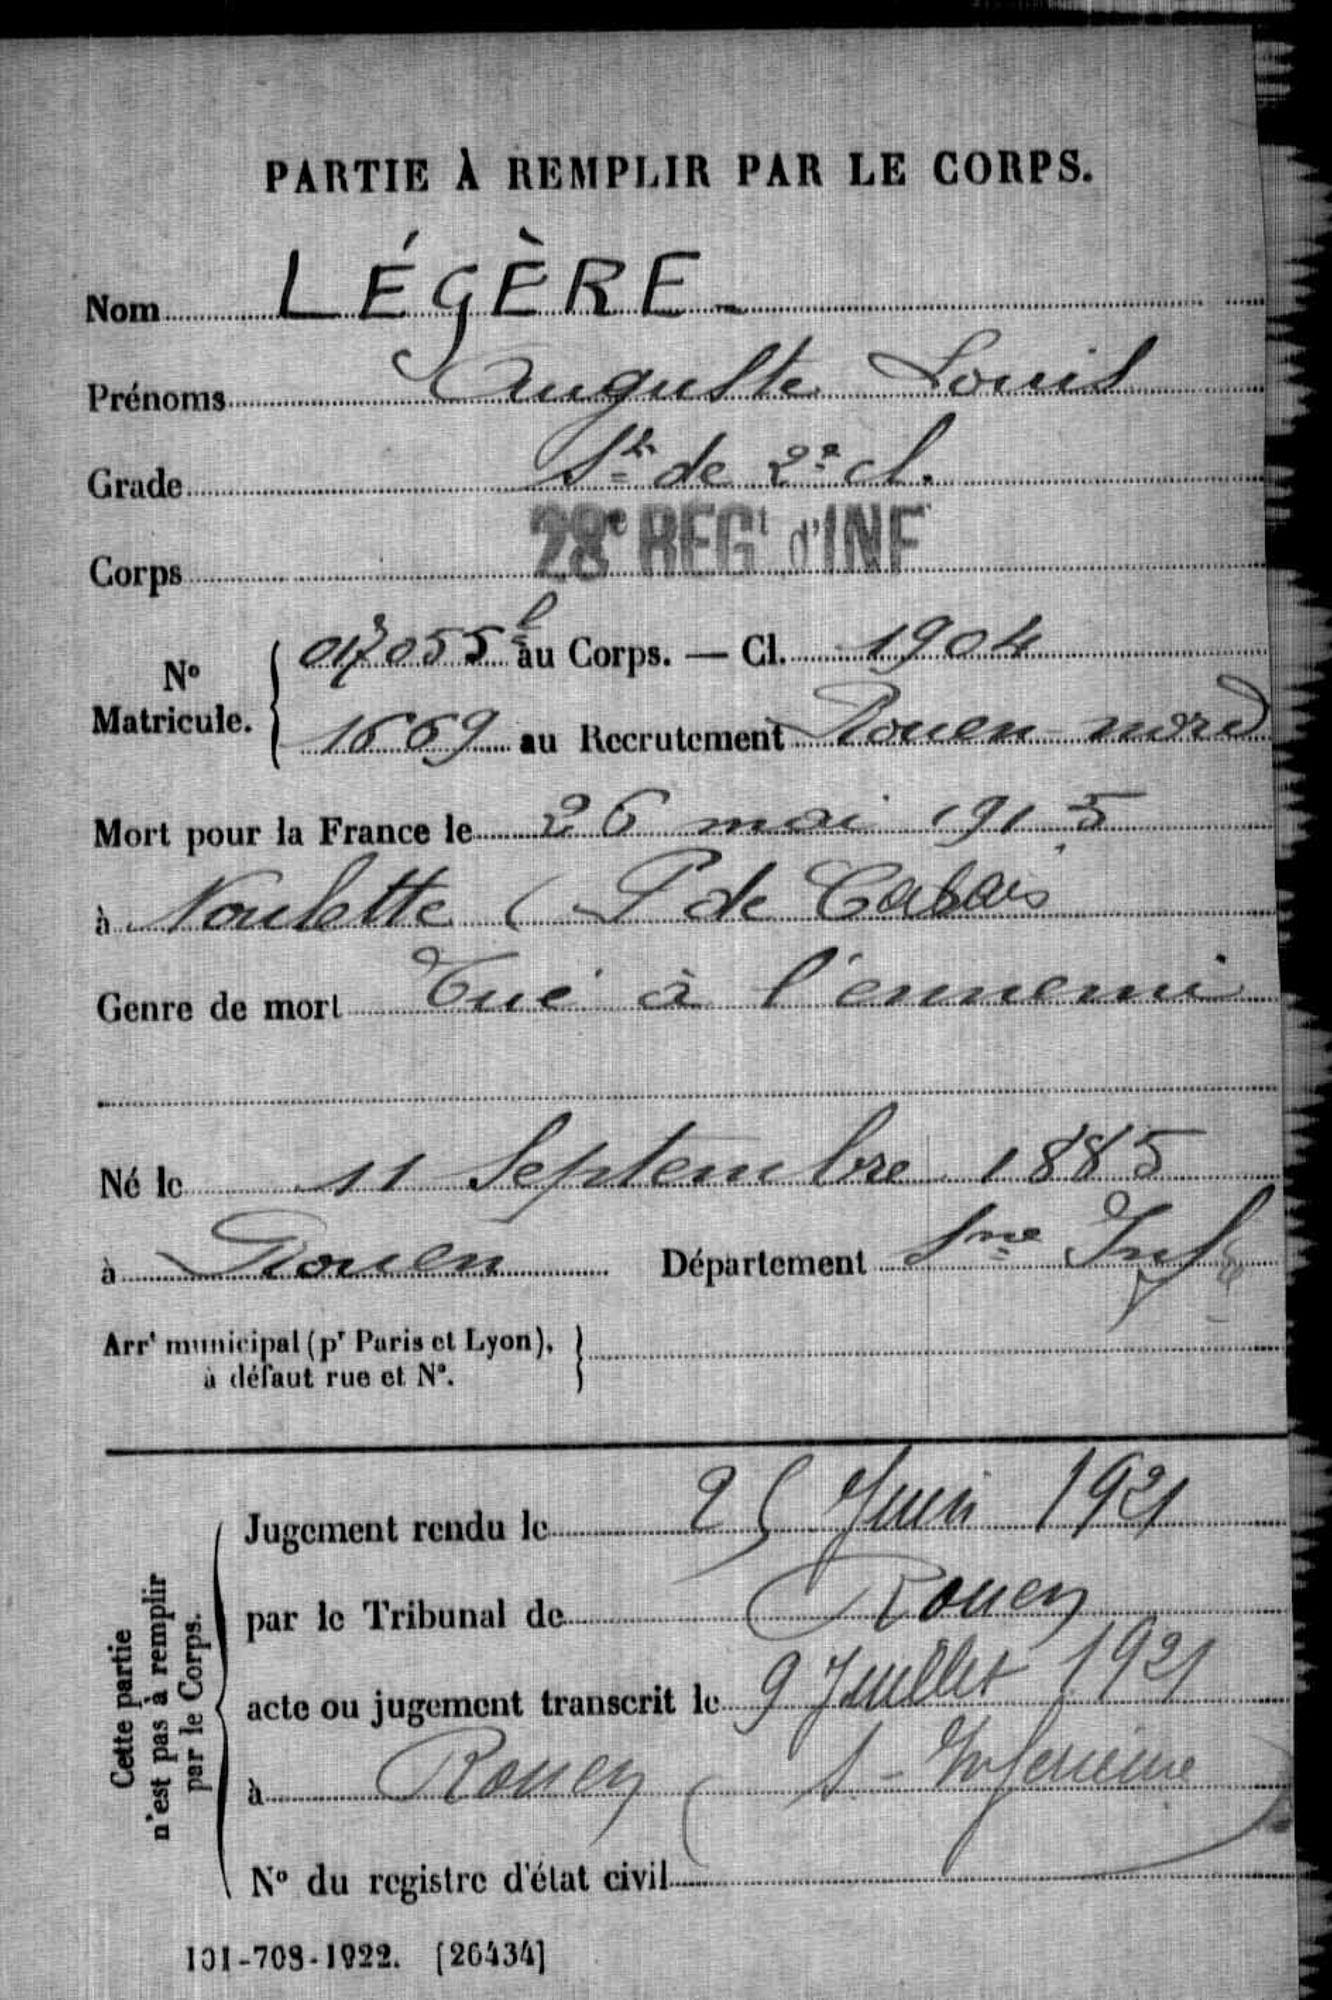 PARTIE À REMPLIR PAR LE CORPS.
Nom LÉGÈRE
Prénoms Auguste Louis
Grade St de 2e cl.
Corps 28e REGt d'INF
No Matricule. au Corps. — Cl. 1904
1669 au Recrutement Rouen nord
Mort pour la France le 26 mai 1915
à Noulette (P de Calais
Genre de mort Tué à l'ennemi
Né le 11 Septembre 1885
à Rouen Département Sne Infre
Arrt municipal (pr Paris et Lyon), à défaut rue et No.
Cette partie n'est pas à remplir par le Corps.
Jugement rendu le 25 Juin 1921
par le Tribunal de Rouen
acte ou jugement transcrit le 9 Juillet 1921
à Rouen (S-Inferieure)
No du registre d'état civil
101-708-1922. [26434]